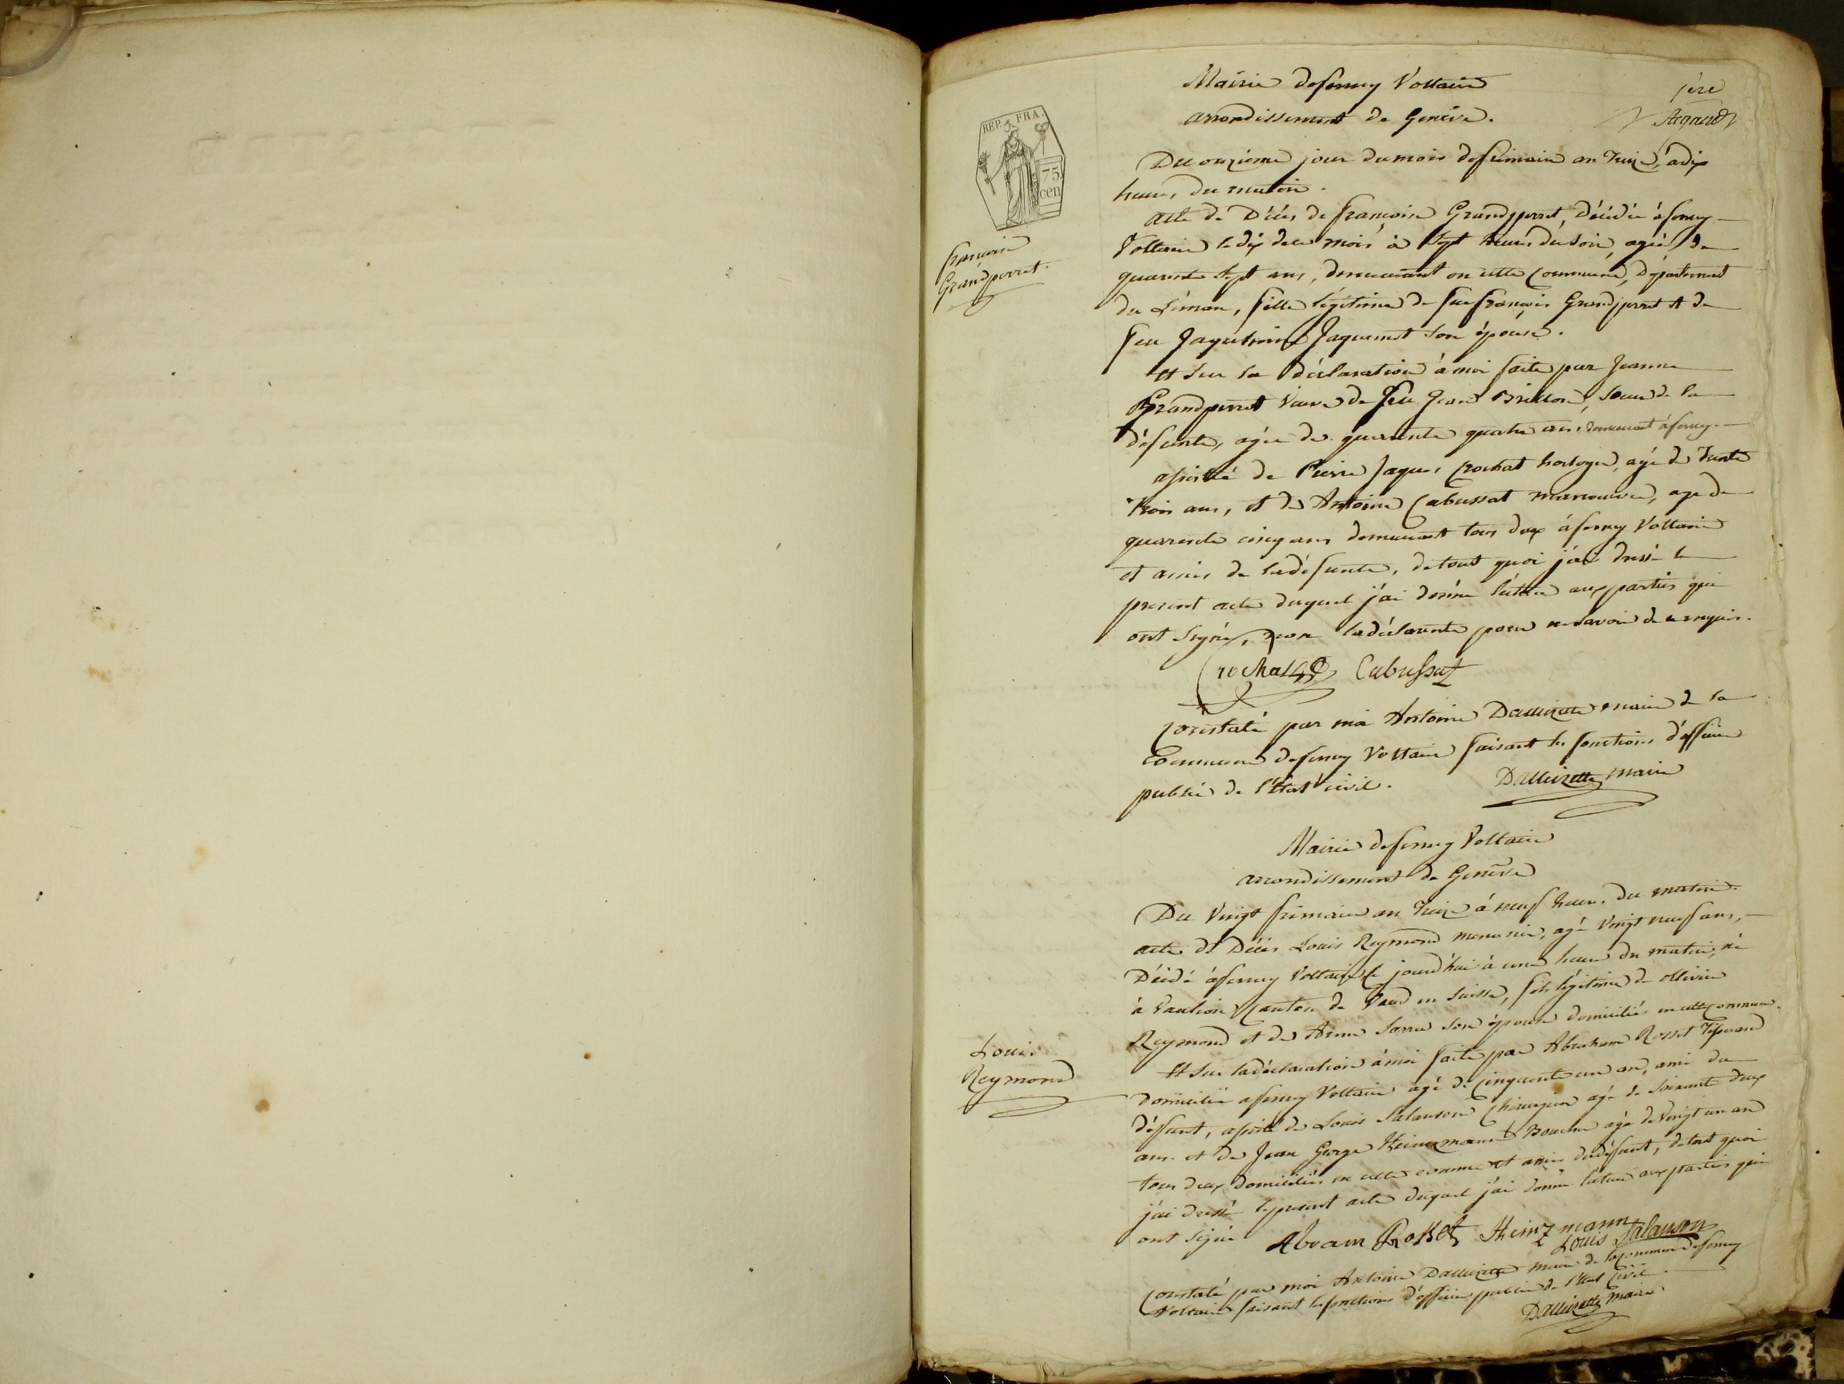 Mairie deferney Voltaire
arrondissement de Genève.
1ère
REP. FRA.
75
cen
Du onzieme jour dumois defrimaire an treize, à dix
heures du matin.
acte de Décès de françoise Grandperret, décédée à ferney
Voltaire le dix dece mois à sept heures du soir, agée de
quarante sept ans, demeurant en cette Commune, département
du Léman, fille légitime de feu françois Grandperret et de
feu Jaquemine Jaquemet son épouse.
françoise
Grandperret.
Et sur la déclaration à moi faite par Jeanne
Grandperret veuve de feu Jean Brillon, soeur de la
défunte, agée de quarante quatre ans, demeurant à ferney.
assistée de Pierre Jaques Crochat horloger, agé de trente
trois ans, et de Antoine Cabussat manoeuvre, age de
quarante cinq ans demeurant tous deux à ferney Voltaire
et amis de la défunte, de tout quoi j'ai dressé le
present acte duquel j'ai donné lecture aux parties qui
ont signé, non la déclarante pour ne savoir de ce requis.
Crochat Cabussat
Constaté par moi Antoine Dallizette maire de la
Commune deferney Voltaire faisant les fonctions d'officier
public de l'État civil.
Dallizette maire
Mairie deferney Voltaire
arrondissement de Genève
Du vingt frimaire an treize à neuf heures du matin.
acte de Décès Louis Reymond menuisier, agé vingt neuf ans,
Décédé à ferney Voltaire ce jourd'hui à une heure du matin, né
à Vaulion Canton de Vaud en Suisse, fils légitime de ollivier
Reymond et de Anne son épouse domiciliés en cette commune.
Louis
Reymond
Et sur la déclaration à moi faite par Abraham Rosset Tisserand
domicilié a ferney Voltaire agé de Cinquante un an, ami du
défunt, assisté de Louis Salauson Chirurgien agé de soixante deux
ans et de Jean George Heinzmann Boucher agé de vingt un an
tous deux domiciliés en cette commune et amis du défunt, de tout quoi
j'ai dressé le present acte duquel j'ai donné lecture aux parties qui
ont signé Abram Rosset Heinzmann
Louis Salauson
Constaté par moi Antoine Dallizette maire de la commune de ferney
Voltaire faisant les fonctions d'officier public de l'État Civil.
Dallizette maire